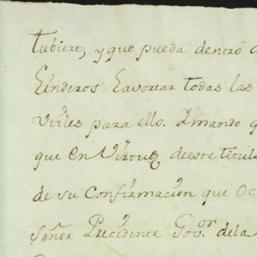 tubiere, y que pueda dentro d
Linderos Lavorear todas las
Utiles para ello. Y mando q
que en Virtud de este titulo
de su Confirmacion que oc
Señor Precidente Gov.or de la